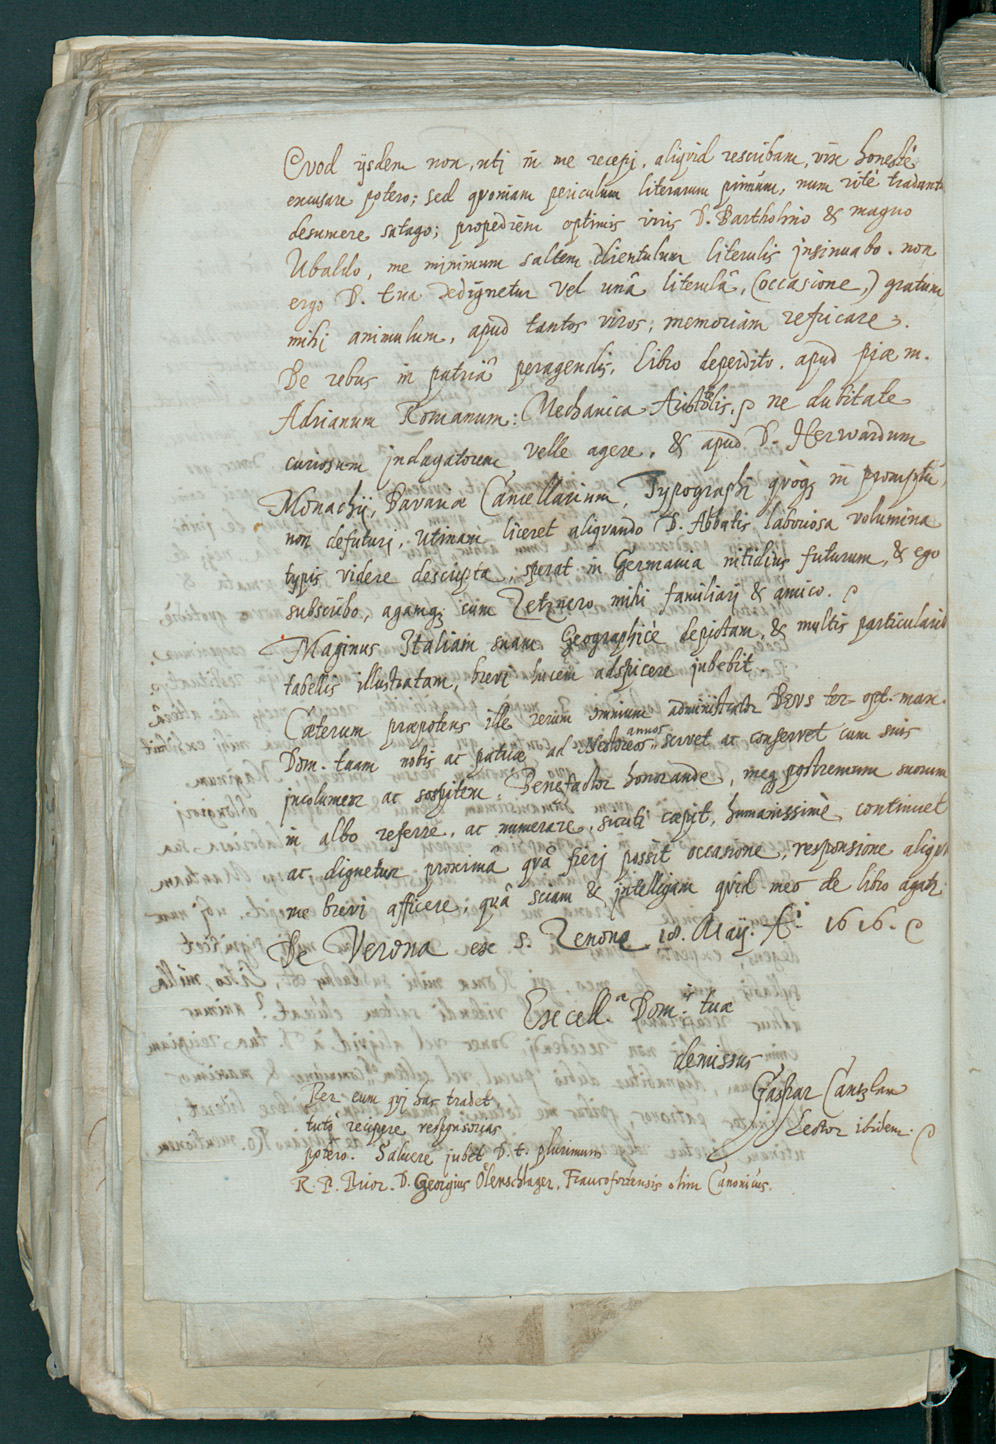 Qvod ijsdem non, utj in me recepj, aliqvid rescribam, vix honestè
excusare potero; sed qvoniam periculum literarum primùm, num ritè tradantur
desumere satago; propediem optimis viris D. Bartholino & magno
Ubaldo, me minimum saltem clientulum literulis jnsinuabo. non
ergo D. tua dedignetur vel unâ literulâ, (occasione,) gratum
mihj animulum, apud tantos viros, memoriam refricare.
De rebus in patriâ peragendis, libro deperdito, apud piæ m.
Adrianum Romanum: Mechanica Aristotelis, ne dubitate
curiosum jndagatorem velle agere, & apud D. Herwardum
Monachij, Bavariæ Cancellarium, Typographi qvoqꝫ in promptu,
non defuturj, utinam liceret aliqvando D. Abbatis laboriosa volumina
typis videre descripta, sperat in Germania nitidius futurum, & ego
subscribo, agamqꝫ cum Zetznero mihi familiarj & amico.
Maginus Italiam suam Geographicè depictam, & multis particularib
tabellis illustratam, brevi lucem adspicere jubebit.
Cæterum præpotens ille rerum omnium administrator DEVS ter opt. max.
Dom. tuam nobis ac patriæ ad Nestoreos annos servet ac conservet cum suis
jncolumem ac sospitem: Benefactor honorande, meqꝫ postremum suorum
in albo referre, ac numerare, sicutj cæpit, humanissimè continuet
ac dignetur proximâ qvâ fierj possit occasione, responsione aliqvâ
me brevi afficere, qvâ sciam & jntelligam qvid meo de libro agatr.
De Verona ex S. Zenone 18. Maij. Ai. 1616.
Excell.æ Dom.is tuæ
demissus
Gaspar Cantzlaw
Lector ibidem.
Per eum qvj has tradet
tutò recipere responsorias
potero. Salvere jubet D. t. plurimum
R. P. Prior. D. Georgius Ölenschlager, Francofortensis olim Canonicus.